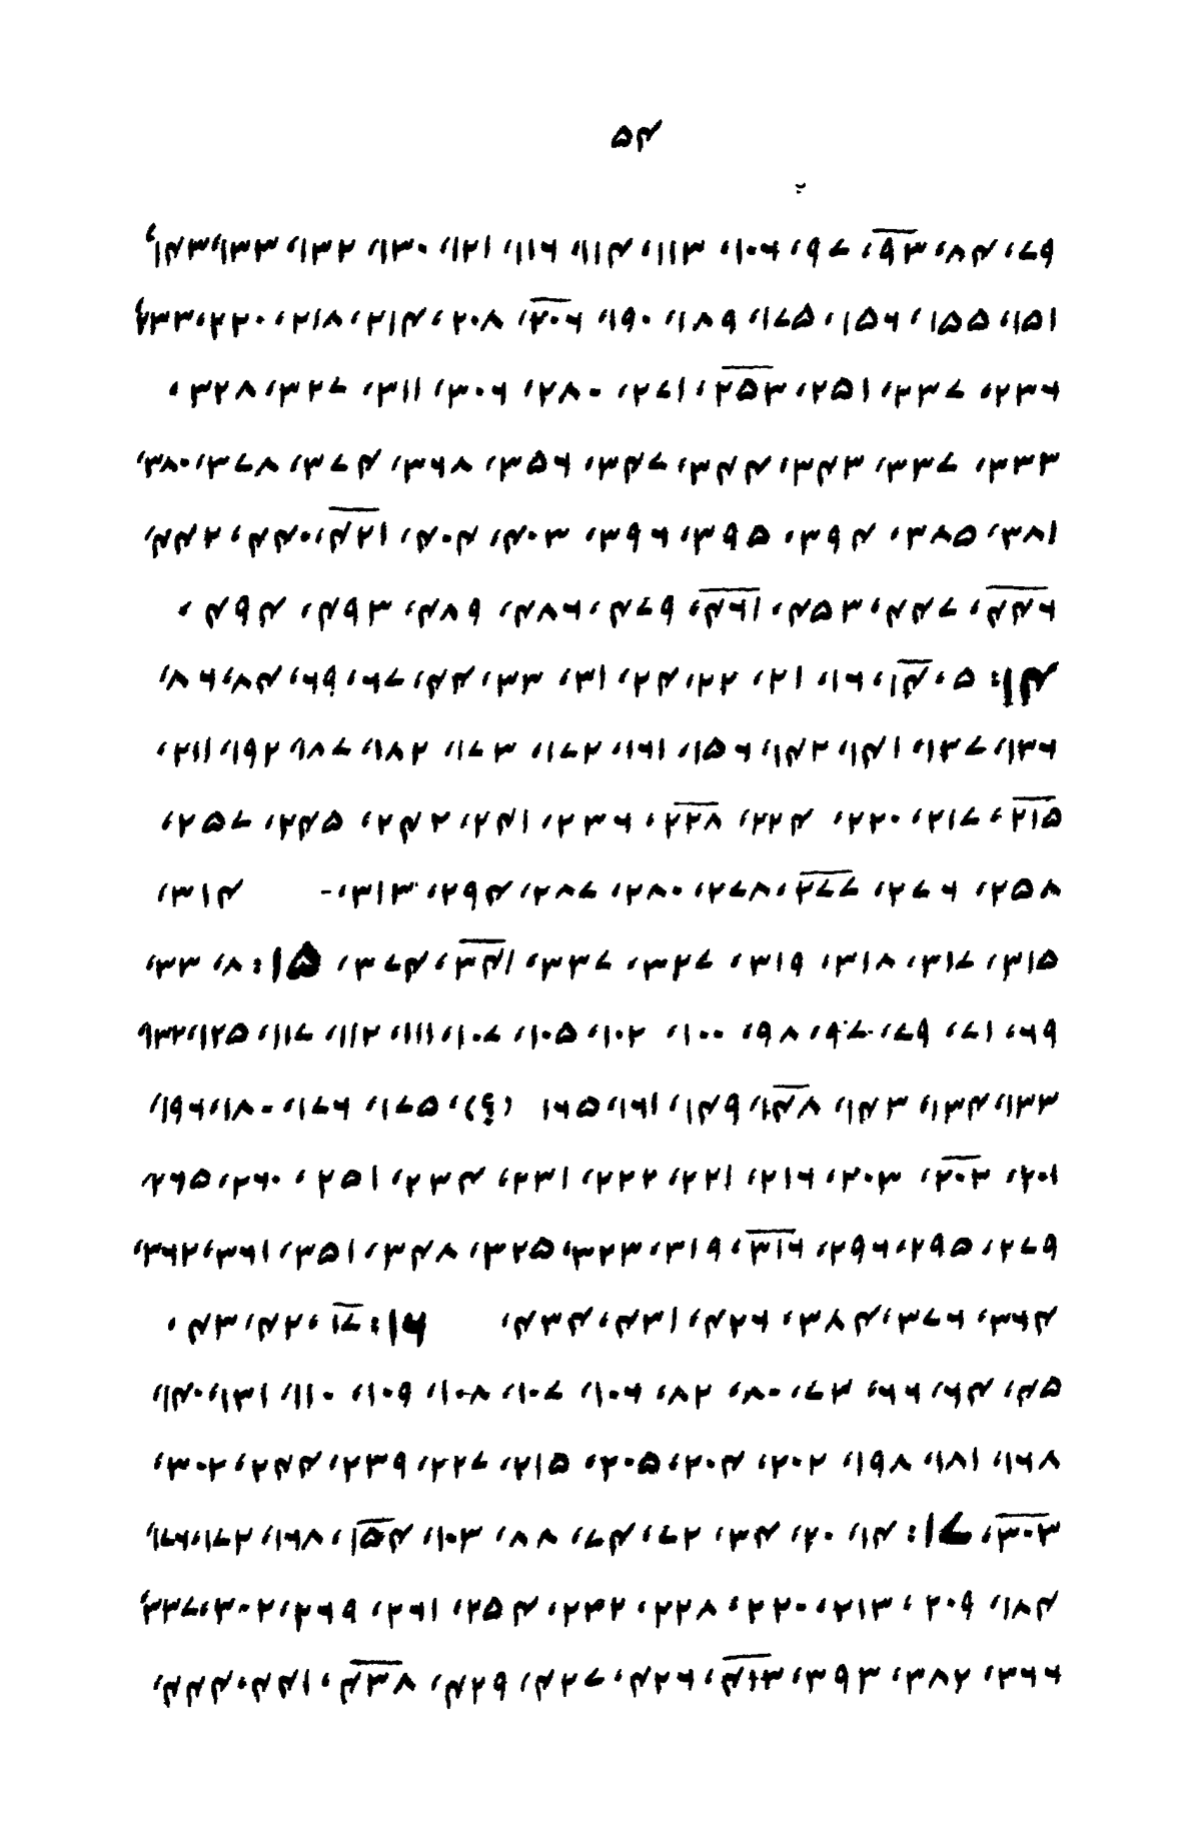 ۵۴
۷۹، ۸۴، ۹۳، ۹۷، ۱۰۶، ۱۱۳، ۱۱۴، ۱۱۶، ۱۲۱، ۱۳۰، ۱۳۲، ۱۳۳، ۱۴۳،
۱۵۱، ۱۵۵، ۱۵۶، ۱۷۵، ۱۸۹، ۱۹۰، ۲۰۶، ۲۰۸، ۲۱۴، ۲۱۸، ۲۲۰، ۲۳۳،
۲۳۶، ۲۳۷، ۲۵۱، ۲۵۳، ۲۷۱، ۲۸۰، ۳۰۶، ۳۱۱، ۳۲۷، ۳۲۸،
۳۳۳، ۳۳۷، ۳۴۳، ۳۴۴، ۳۴۷، ۳۵۶، ۳۶۸، ۳۷۴، ۳۷۸، ۳۸۰،
۳۸۱، ۳۸۵، ۳۹۴، ۳۹۵، ۳۹۶، ۴۰۳، ۴۰۴، ۴۲۱، ۴۴۰، ۴۴۲،
۴۴۶، ۴۴۷، ۴۵۳، ۴۶۱، ۴۷۹، ۴۸۶، ۴۸۹، ۴۹۳، ۴۹۴،
۱۴: ۵، ۱۴، ۱۶، ۲۱، ۲۲، ۲۴، ۳۱، ۳۳، ۴۴، ۶۷، ۶۹، ۸۴، ۸۶،
۱۳۶، ۱۳۷، ۱۴۱، ۱۴۲، ۱۵۶، ۱۶۱، ۱۷۲، ۱۷۳، ۱۸۲، ۱۸۷، ۱۹۲، ۲۱۱،
۲۱۵، ۲۱۷، ۲۲۰، ۲۲۴، ۲۲۸، ۲۳۶، ۲۴۱، ۲۴۲، ۲۴۵، ۲۵۷،
۲۵۸، ۲۷۶، ۲۷۷، ۲۷۸، ۲۸۰، ۲۸۷، ۲۹۴، ۳۱۳،- ۳۱۴،
۳۱۵، ۳۱۷، ۳۱۸، ۳۱۹، ۳۲۷، ۳۳۷، ۳۴۱، ۳۷۴، ۱۵: ۸، ۳۳،
۶۹، ۷۱، ۷۹، ۹۷، ۹۸، ۱۰۰، ۱۰۲، ۱۰۵، ۱۰۷، ۱۱۱، ۱۱۲، ۱۱۷، ۱۲۵، ۱۳۲،
۱۳۳، ۱۳۴، ۱۴۳، ۱۴۸، ۱۴۹، ۱۶۱، ۱۶۵ (؟)، ۱۷۵، ۱۷۶، ۱۸۰، ۱۹۶،
۲۰۱، ۲۰۲، ۲۰۳، ۲۱۶، ۲۲۱، ۲۲۲، ۲۳۱، ۲۳۴، ۲۵۱، ۲۶۰، ۲۶۵،
۲۷۹، ۲۹۵، ۲۹۶، ۳۱۶، ۳۱۹، ۳۲۳، ۳۲۵، ۳۴۸، ۳۵۱، ۳۶۱، ۳۶۲،
۳۶۴، ۳۷۶، ۴۲۶، ۴۳۱، ۴۳۴، ۱۶: ۱۷، ۴۲، ۴۳،
۴۵، ۶۴، ۶۶، ۷۳، ۸۰، ۸۲، ۱۰۶، ۱۰۷، ۱۰۸، ۱۰۹، ۱۱۰، ۱۳۱، ۱۴۰،
۱۶۸، ۱۸۱، ۱۹۸، ۲۰۲، ۲۰۴، ۲۰۵، ۲۱۵، ۲۲۷، ۲۳۹، ۲۴۴، ۳۰۲،
۳۰۳، ۱۷: ۱۴، ۲۰، ۳۴، ۷۲، ۷۴، ۷۸، ۱۰۳، ۱۵۴، ۱۶۸، ۱۷۲، ۱۷۶،
۱۸۴، ۲۰۹، ۲۱۳، ۲۲۰، ۲۲۸، ۲۳۲، ۲۵۴، ۲۶۱، ۲۶۹، ۳۰۲، ۳۳۷،
۳۶۶، ۳۸۲، ۳۹۳، ۴۱۳، ۴۲۶، ۴۲۷، ۴۲۹، ۴۳۸، ۴۴۱، ۴۴۴،